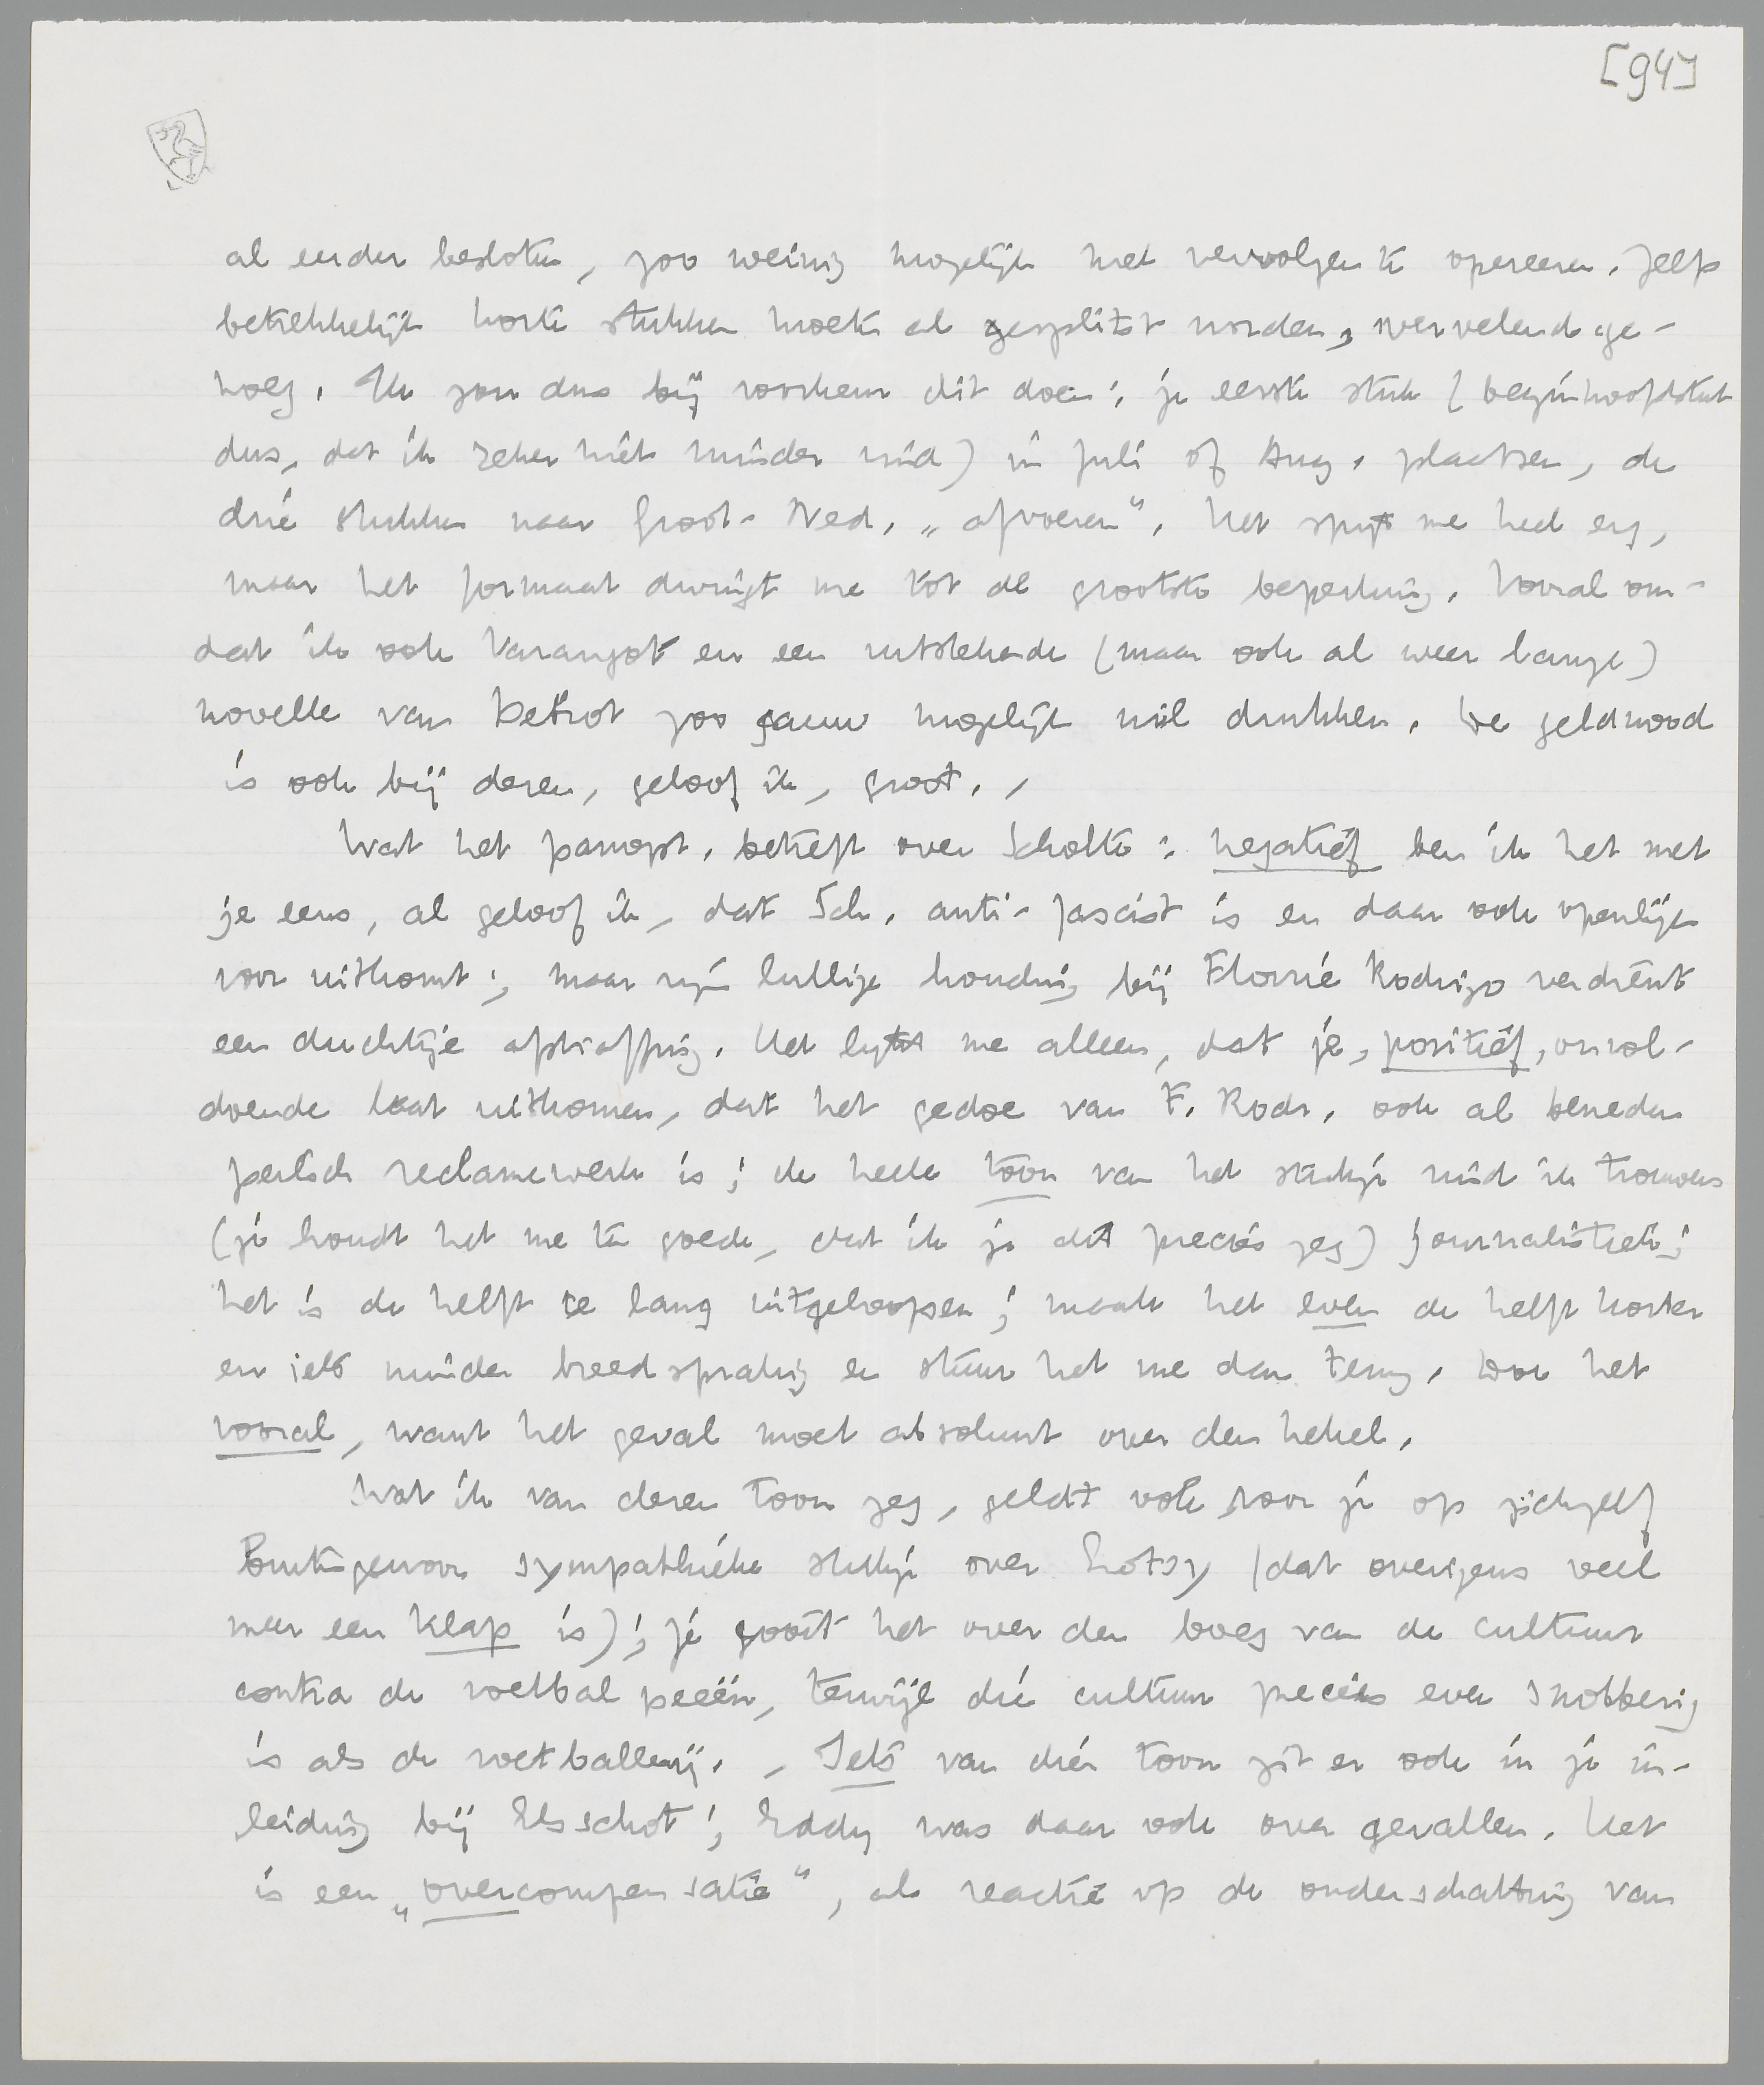 [94]
al eerder besloten, zoo weinig mogelijk met vervolgen te opereeren. Zelfs
betrekkelijk korte stukken moeten al gesplitst worden, vervelend ge-
noeg. Ik zou dus bij voorkeur dit doen: je eerste stuk (beginhoofdstuk
dus, dat ik zeker niet minder vind) in Juli of Aug. plaatsen, de
drie stukken naar Groot-Ned. „afvoeren”. Het spijt me heel erg,
maar het formaat dwingt me tot de grootste beperking. Vooral om-
dat ik ook Varangot en een uitstekende (maar ook al weer lange)
novelle van Petrot zoo gauw mogelijk wil drukken. De geldnood
is ook bij dezen, geloof ik, groot. -
Wat het panopt. betreft over Scholte: negatief ben ik het met
je eens, al geloof ik, dat Sch. anti-fascist is en daar ook openlijk
voor uitkomt; maar zijn lullige houding bij Florrie Rodrigo verdient
een duchtige afstraffing. Het lijkt me alleen, dat je, positief, onvol-
doende laat uitkomen, dat het gedoe van F. Rodr. ook al beneden
peilsch reclamewerk is; de heele toon van het stukje vind ik trouwens
(je houdt het me ten goede, dat ik je dit precies zeg) journalistiek;
het is de helft te lang uitgeloopen; maak het even de helft korter
en iets minder breedsprakig en stuur het me dan terug. Doe het
vooral, want het geval moet absoluut over den hekel.
Wat ik van dezen toon zeg, geldt ook voor je op zichzelf
buitengewoon sympathieke stukje over Lotsy (dat overigens veel
meer een klap is); je gooit het over den boeg van de cultuur
contra de voetbal peeën, terwijl die cultuur precies even snobberig
is als de voetballerij. - Iets van dien toon zit er ook in je in-
leiding bij Elsschot; Eddy was daar ook over gevallen. Het
is een „overcompensatie”, als reactie op de onderschatting van